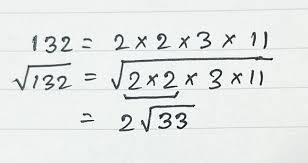 132 = 2 × 2 × 3 × 11
√132 = √2 × 2 × 3 × 11
= 2√33